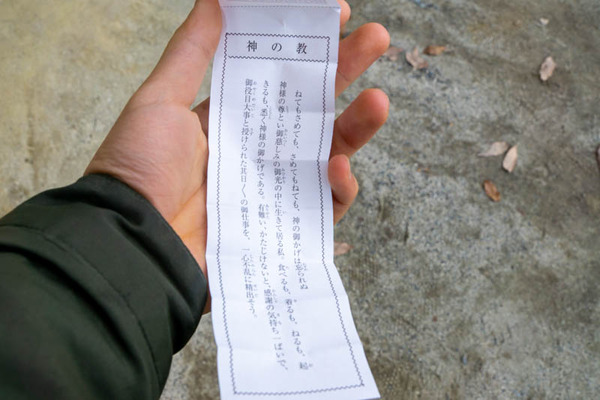 神の教
ねてもさめても、さめてもねても、神の御かげは忘られぬ
神様の尊とい御慈しみの御光の中に生きて居る私。食べるも、着るも、ねるも、起
きるも、悉く神様の御かげである。有難い、かたじけないと、感謝の気持ち一ぱいで、
御役目大事と授けられた其日〳〵の御仕事を、一心不乱に精出そう。